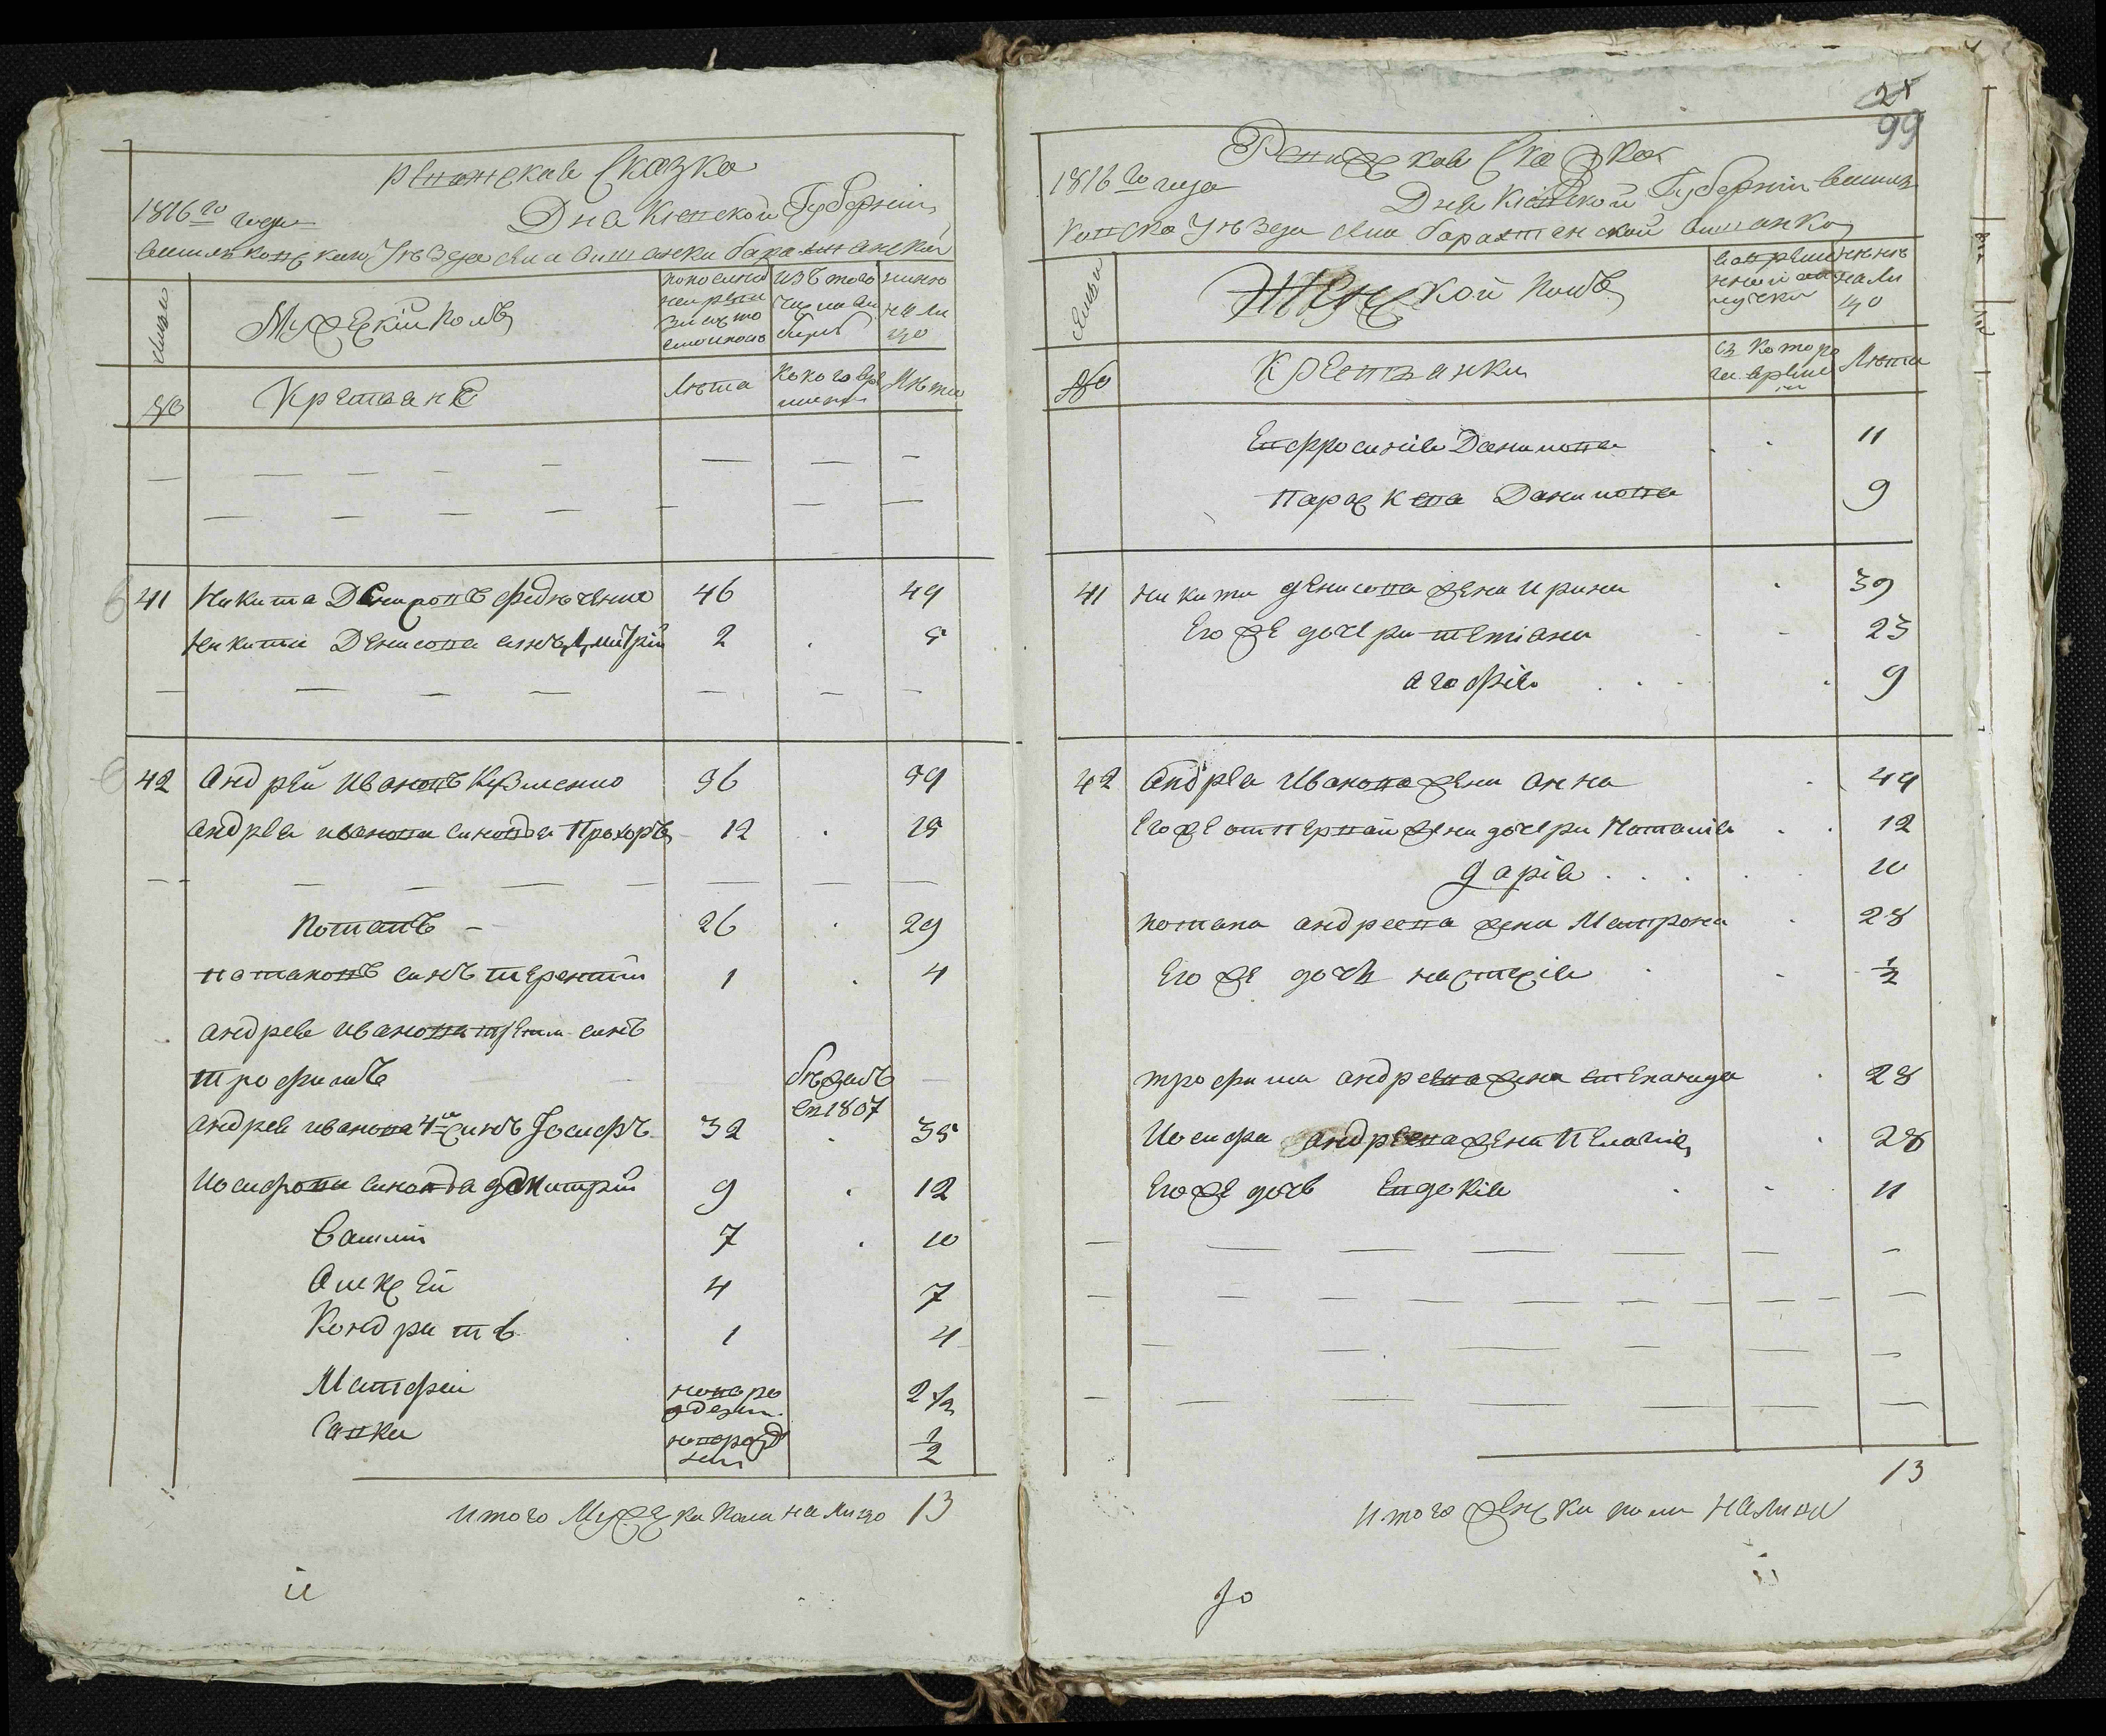 Ревижская Сказка
1816го года Дня Кіевской Губерніи
Василковскаго Уѣзда села Ольшанки Барахтянской
Семьи
Мужескій полъ
по последней ревизіи состояло
Изъ того числа выбыло
Ныне на лицо
№
Крестьяне
Лѣта
Когда именно
Лѣта
41 Никита Денисовъ 46 49
Никиты Денисова синъ Дмитрій 2 5
42 Андрей Ивановъ Кузменко 56 59
Андрея Иванова синовья Прохоръ 12 15
Потапъ 26 29
Потаповъ синъ Терентій 1 4
Андрея Иванова третій синъ
Трофимъ
бѣжалъ
въ 1807
Андрея Иванова 4й синъ Іосифъ 32 35
Иосифова синовья Дмитрій 9 12
Василій 7 10
Алексей 4 7
Кондратъ 1 4
Матфей новорожденъ 2 1/2
Савка новорожденъ 1/2
Итого Мужеска пола на лицо 13
и
99
Ревижская Сказка
1816го года Дня Кіевской Губерніи Василковска Уѣзда села Барахтянской Ольшанки
Семьи
Женской полъ
во временной отлучки
Ныне на лицо
№
Крестьянки
съ которого времени
Лѣта
Евфросинія Данилова 11
Параскева Данилова 9
41 Никиты Денисова жена Ирина 39
Его же дочери Тетіана 23
Агафія 9
42 Андрея Иванова жена Анна 49
Его же от первой жены дочери Наталія 12
Дарія 10
Потапа Андреева жена Матрона 28
Его же дочь Настасія 1/2
Трофима Андреева жена Степанида 28
Иосифа Андреева жена Пелагія 28
Его же дочь Евдокія 11
13
Итого женска пола на лицо